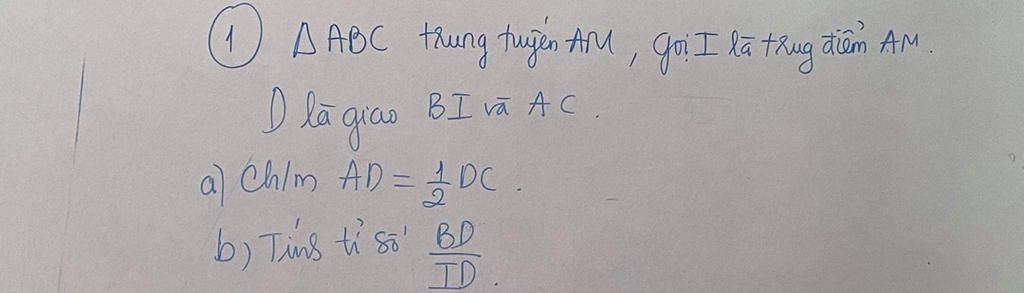 ① Δ ABC trung tuyến AM, gọi I là trug điểm AM.
D là giao BI và AC.
a) Ch/m AD = \frac{1}{2} DC.
b) Tính tỉ số \frac{BD}{ID}.